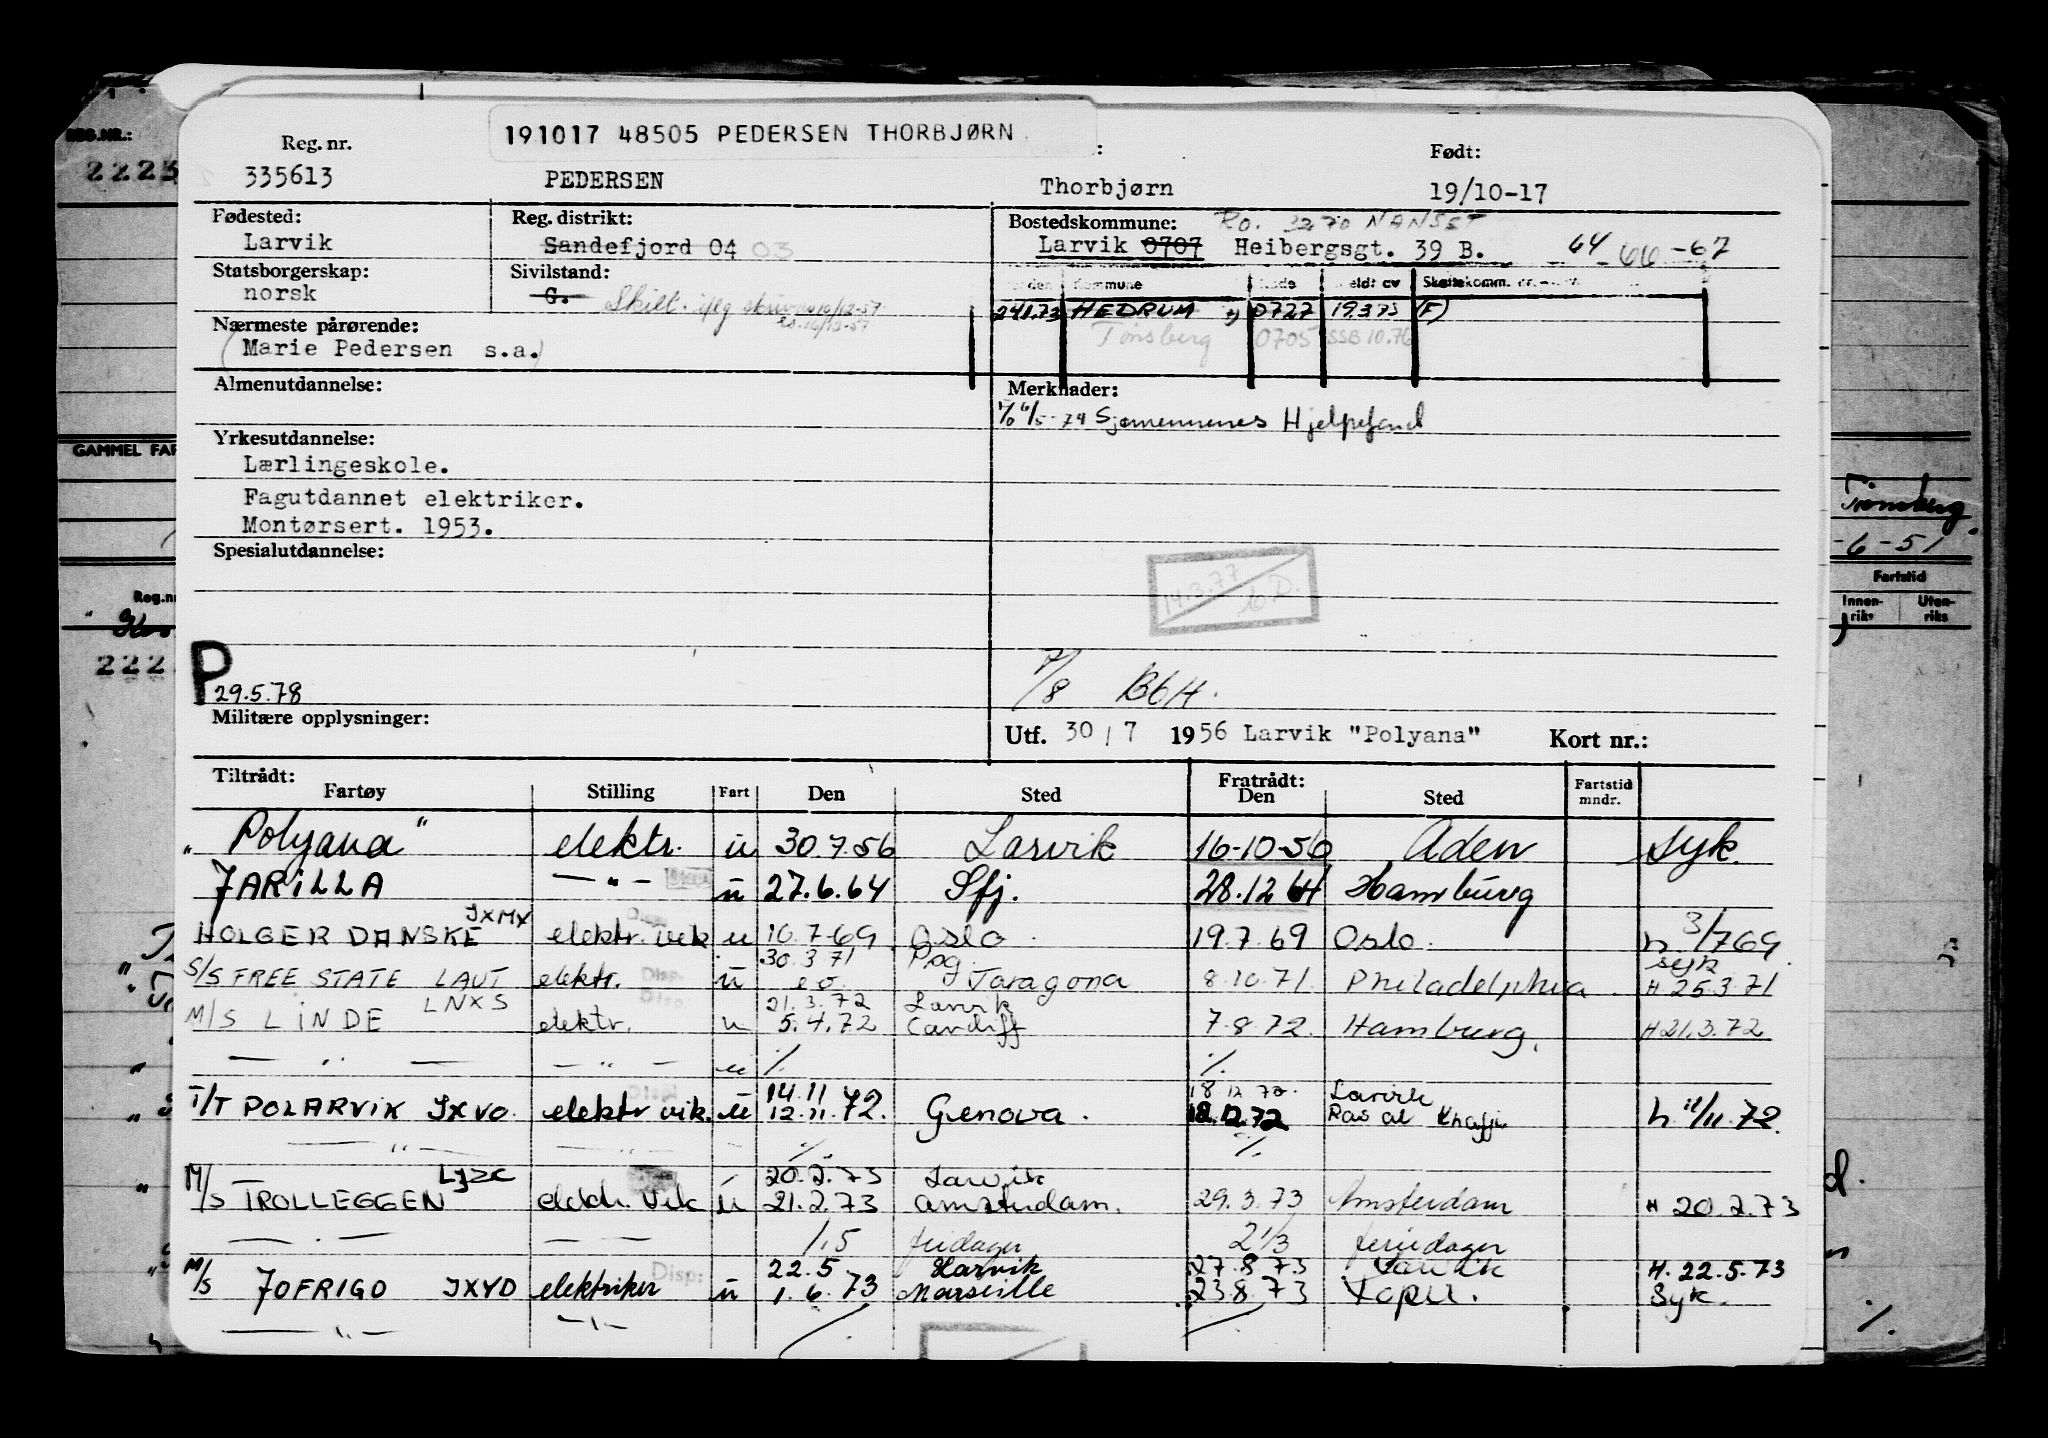 191017 48505 PEDERSEN THORBJØRN
Reg. nr. Født:
335613 PEDERSEN Thorbjørn 19/10-17
Fødested: Reg. distrikt: Bostedskommune: 3270 NANSET
Larvik Sandefjord 04 03 Larvik 0707 Heibergsgt. 39 B. 64 - 66 - 67
Statsborgerskap: Sivilstand:
norsk G. Skilt. iflg
24.1.73 HEDRUM 0727 19373 (F)
Tønsberg 0705 SSB 10.76
Nærmeste pårørende:
(Marie Pedersen s.a.)
Almenutdannelse: Merknader:
Sjømennenes Hjelpefond
Yrkesutdannelse:
Lærlingeskole.
Fagutdannet elektriker.
Montørsert. 1953.
Spesialutdannelse:
14.3.77
P
29.5.78
7/8
Militære opplysninger:
Utf. 30 / 7 1956 Larvik "Polyana" Kort nr.:
Tiltrådt: Fratrådt:
Fartøy Stilling Fart Den Sted Den Sted Fartstid mndr.
"Polyana" elektr. u 30.7.56 Larvik 16-10-56 Aden syk.
JARILLA — " — u 27.6.64 Sfj. 28.12 64 Hamburg
JXMX
HOLGER DANSKE elektr. vik u 10.7.69 Oslo 19.7.69 Oslo. h 3/7 69
30.3 71 Pog syk
S/S FREE STATE LAUT elektr. Disp. u Taragona 8.10.71. Philadelphia H 25.3.71
LNXS 21.3.72 Larvik
M/S LINDE elektr. u 5.4.72 Cardiff 7.8.72. Hamburg. H 21.3.72
— " — — " — u % %
14.11 18 12 72. Larvik
T/T POLARVIK JXVO. elektr vik. u 12.11.72. Genova. 18.12.72 Ras al Khafji h 11/11.72.
— " — — " — % %
20.2.73 Larvik
M/S TROLLEGGEN elektr. vik u 21.2.73 Amsterdam. 29.3.73 Amsterdam H 20.2.73
— " — — — 1,5 feriedager 2 1/3 feriedager
22.5. Larvik 27.8 73 Larvik H. 22.5.73
M/S JOFRIGO JXYD elektriker Disp: u 1.6.73 Marseille 23.8.73 Syk.
— " — — " —
REG.NR.:
2223
GAMMEL FAR
Reg.n
222
Tønsberg
-6-51
Fartstid
Innen-riks Uten-riks
%